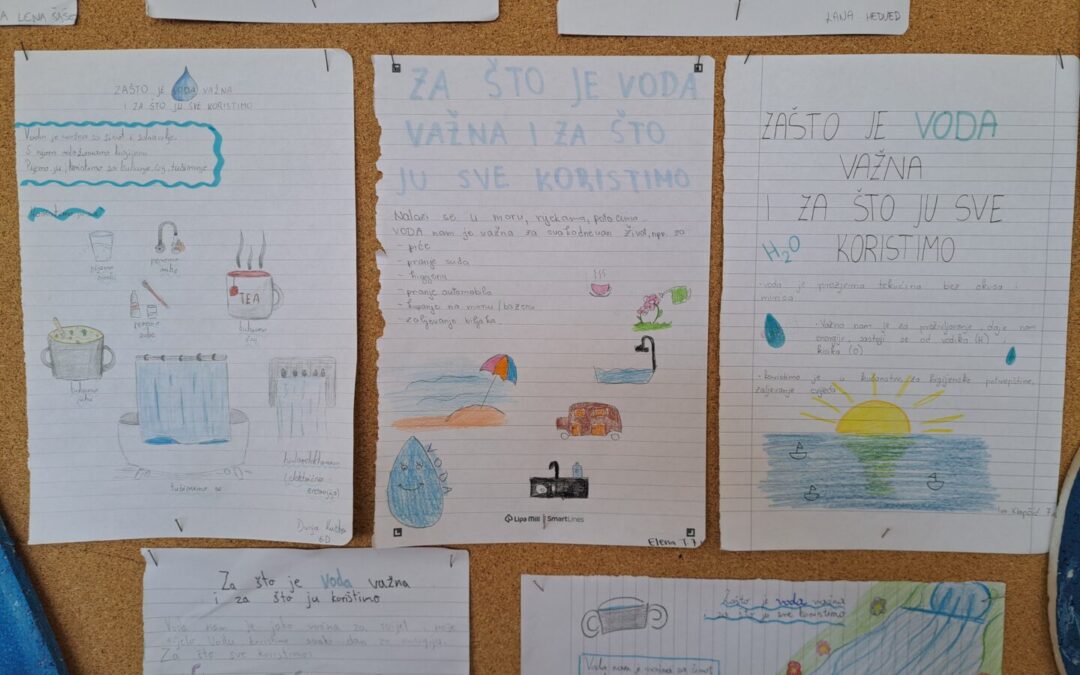 LENA
LANA HEDVED
ZAŠTO JE VODA VAŽNA
I ZA ŠTO JU SVE KORISTIMO
Voda je važna za život i zdravlje.
S njom održavamo higijenu.
Pijemo ju, koristimo za kuhanje, tuširanje.
pijemo
peremo ruke
peremo zube
TEA
kuhamo čaj
kuhamo juhu
tuširamo se
hidroelektrane
(električna energija)
Dunja
6D
ZA ŠTO JE VODA
VAŽNA I ZA ŠTO
JU SVE KORISTIMO
Nalazi se u moru, rijekama, potocima...
VODA nam je važna za svakodnevan život, npr. za
- piće
- pranje suđa
- higijenu
- pranje automobila
- kupanje na moru/bazenu
- zalijevanje biljaka
VODA
Lipa Mill | SmartLines
Elena T.
ZAŠTO JE VODA
VAŽNA
I ZA ŠTO JU SVE
KORISTIMO
H2O
- voda je prozirna tekućina bez okusa i
mirisa
- Važna nam je za preživljavanje, daje nam
energiju, sastoji se od vodika (H) i
kisika (O)
- koristimo je u kućanstvu, za higijenske potrepštine,
zalijevanje cvijeća
Za što je Voda važna
i za što ju koristimo
Voda nam je jako važna za svijet i naše
tijelo. Vodu koristimo svaki dan za
Za što sve koristimo
Zašto je voda važna
i za što ju sve koristimo
Voda nam je važna za život